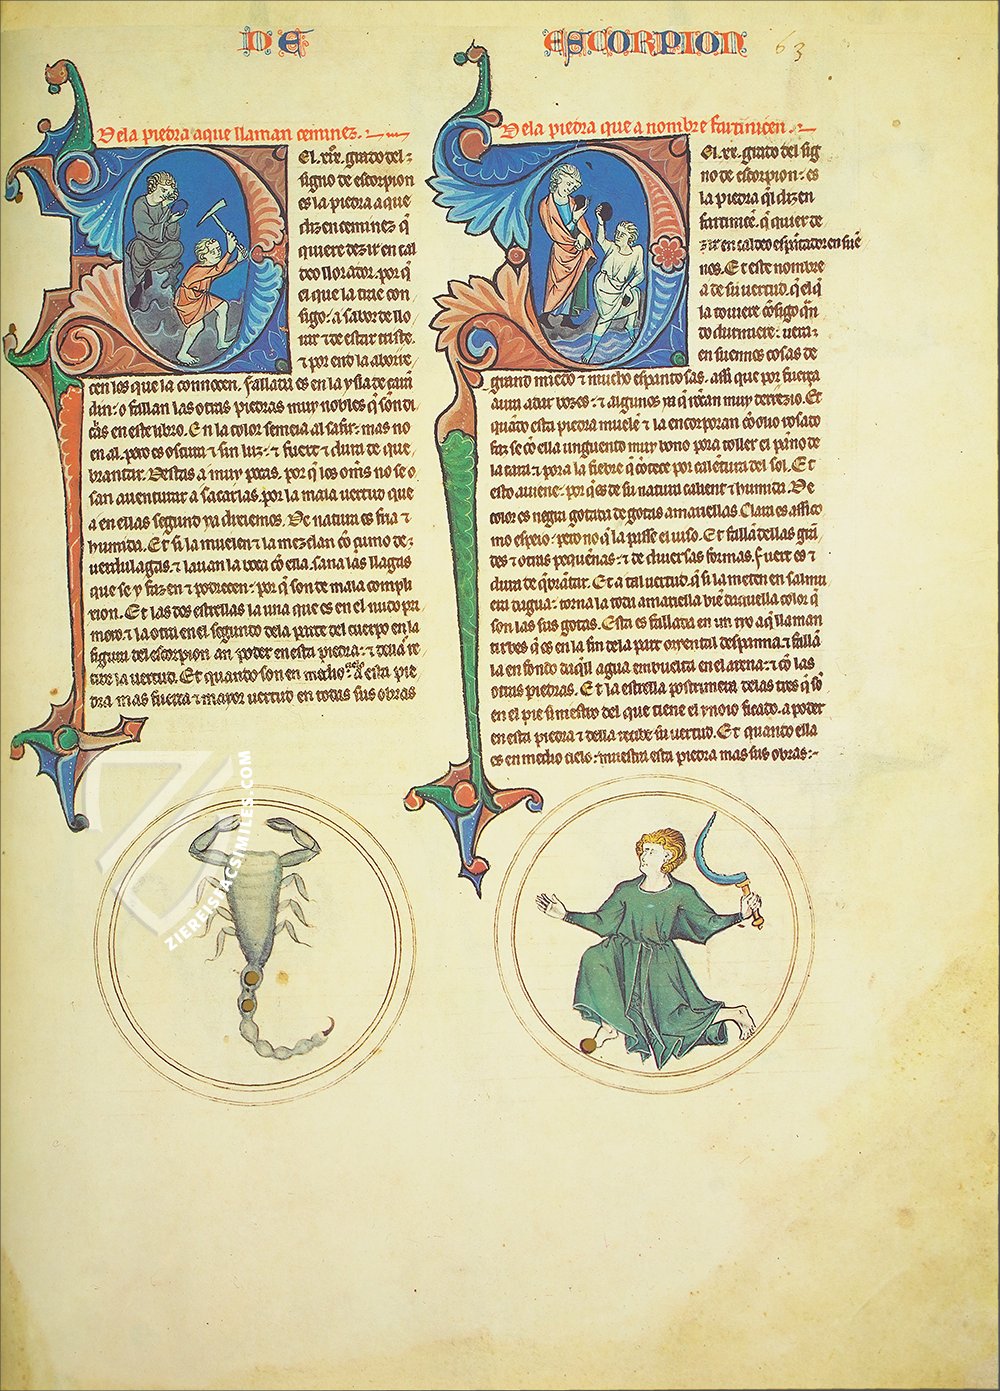 DE
ESCORPION
63
Dela piedra aque llaman ceminez.
El .xix. grado del
signo de escorpion
es la piedra a que
dizen ceminez q̃
quiere dezir en cal
deo llorador. por q̃
el que la trae con
sigo. a sabor de llo
rar ⁊ de estar triste.
⁊ por endo la aborre
cen los que la connocen. Fallada es en la ysla de
din: o fallan las otras piedras muy nobles q̃ son di
c̃as en este libro. En la color semeia al safir: mas no
en al. pero es oscura ⁊ sin luz: ⁊ fuerte ⁊ dura de que
brantar. Destas a muy pocas. por q̃ los om̃s no se o
san auenturar a sacarlas. por la mala uertud que
a en ellas segund ya dixiemos. De natura es fria ⁊
humida. Et si la muelen ⁊ la mezclan cõ çumo de
uerdulagas. ⁊ lauan la boca cõ ella. sana las llagas
que se y fazen ⁊ podrecen: por q̃ son de mala compli
xion. Et las dos estrellas la una que es en el nudo pri
mero. ⁊ la otra en el segundo dela parte del cuerpo en la
figura del escorpion an poder en esta piedra: ⁊ della re
cibe la uertud. Et quando son en medio cielo a esta pie
dra mas fuerça ⁊ mayor uertud en todas sus obras
Dela piedra que a nombre fartinicen.
El .xx. grado del sig
no de escorpion: es
la piedra q̃ dizen
fartinicẽ. q̃ quier de
zir en caldeo espãtador en sue
nos. Et este nombre
a de su uertud. q̃ el q̃
la touiere cõsigo q̃n
do durmiere: uera
en suennos cosas de
grand miedo ⁊ mucho espantosas. assi que por fuerça
aura adar bozes: ⁊ algunos ya q̃ toman muy
Et
quãdo esta piedra muelẽ ⁊ la encorporan cõ oiio rosado
faz se cõ ella unguento muy bono pora toller el pãno de
la cara ⁊ pora la fiebre q̃ cõtece por calẽtura del sol. Et
esto auiene: por q̃ es de su natura calient ⁊ humida. De
color es negra gotada de gotas amariellas. Clara es assi co
mo espeio: pero no q̃ la passe el uiso. Et fallã dellas grã
des ⁊ otras pequẽnas: ⁊ de diuersas formas. Fuert es ⁊
dura de q̃brãtar. Et a tal uertud. q̃ si la meten en salmu
era dagua: torna la toda amariella biẽ daquella color q̃
son las sus gotas. Esta es fallada en un ryo a q̃ llaman
turbes q̃ es en la fin dela part oriental despanna: ⁊ fallã
la en fondo daq̃l agua embuelta en el arena: ⁊ cõ las
otras piedras. Et la estrella postrimera delas tres q̃ sõ
en el pie siniestro del que tiene el ynoio ficado. a poder
en esta piedra ⁊ della recibe su uertud. Et quando ella
es en medio cielo: muestra esta piedra mas sus obras:-
ZIEREISFACSIMILES.COM